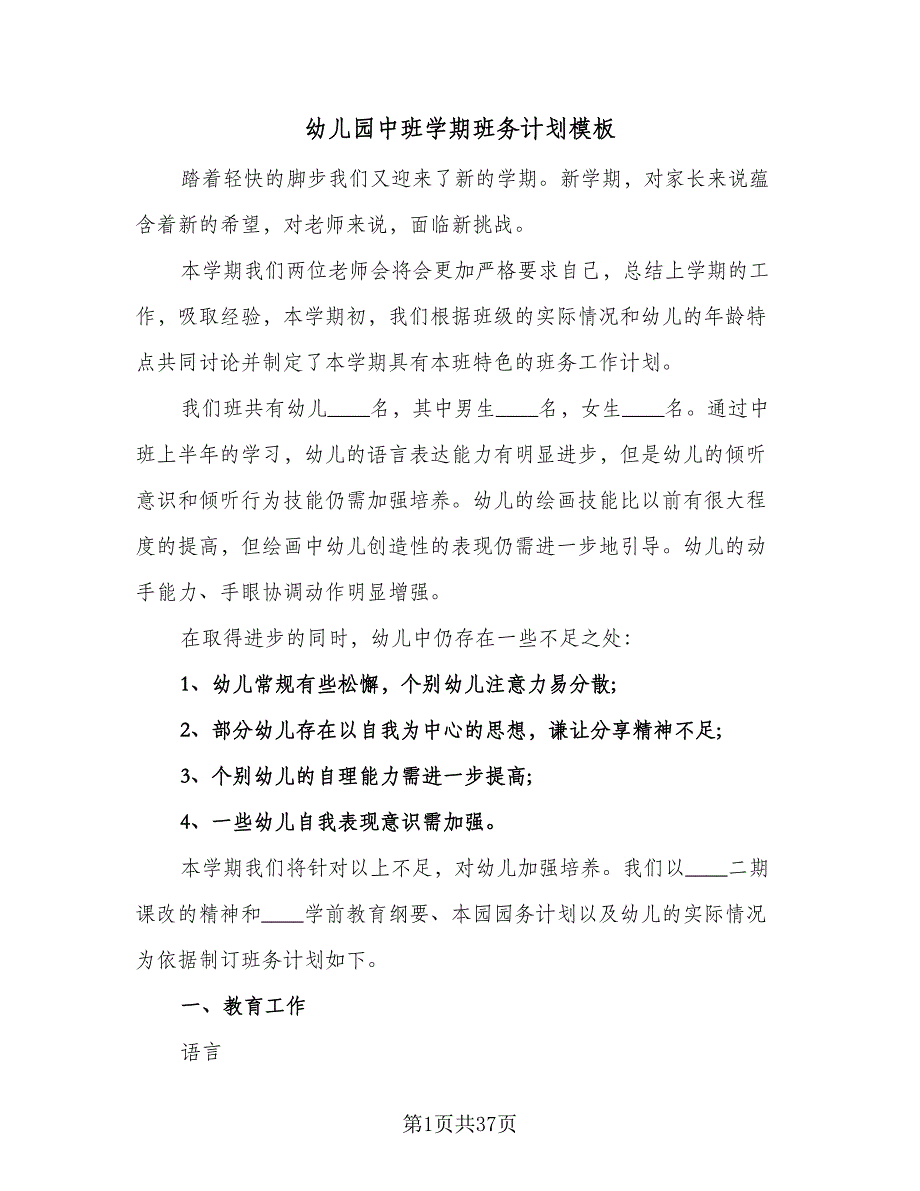 幼儿园中班学期班务计划模板
踏着轻快的脚步我们又迎来了新的学期。新学期，对家长来说蕴
含着新的希望，对老师来说，面临新挑战。
本学期我们两位老师会将会更加严格要求自己，总结上学期的工
作，吸取经验，本学期初，我们根据班级的实际情况和幼儿的年龄特
点共同讨论并制定了本学期具有本班特色的班务工作计划。
我们班共有幼儿____名，其中男生____名，女生____名。通过中
班上半年的学习，幼儿的语言表达能力有明显进步，但是幼儿的倾听
意识和倾听行为技能仍需加强培养。幼儿的绘画技能比以前有很大程
度的提高，但绘画中幼儿创造性的表现仍需进一步地引导。幼儿的动
手能力、手眼协调动作明显增强。
在取得进步的同时，幼儿中仍存在一些不足之处：
1、幼儿常规有些松懈，个别幼儿注意力易分散；
2、部分幼儿存在以自我为中心的思想，谦让分享精神不足；
3、个别幼儿的自理能力需进一步提高；
4、一些幼儿自我表现意识需加强。
本学期我们将针对以上不足，对幼儿加强培养。我们以____二期
课改的精神和____学前教育纲要、本园园务计划以及幼儿的实际情况
为依据制订班务计划如下。
一、教育工作
语言
第1页共37页